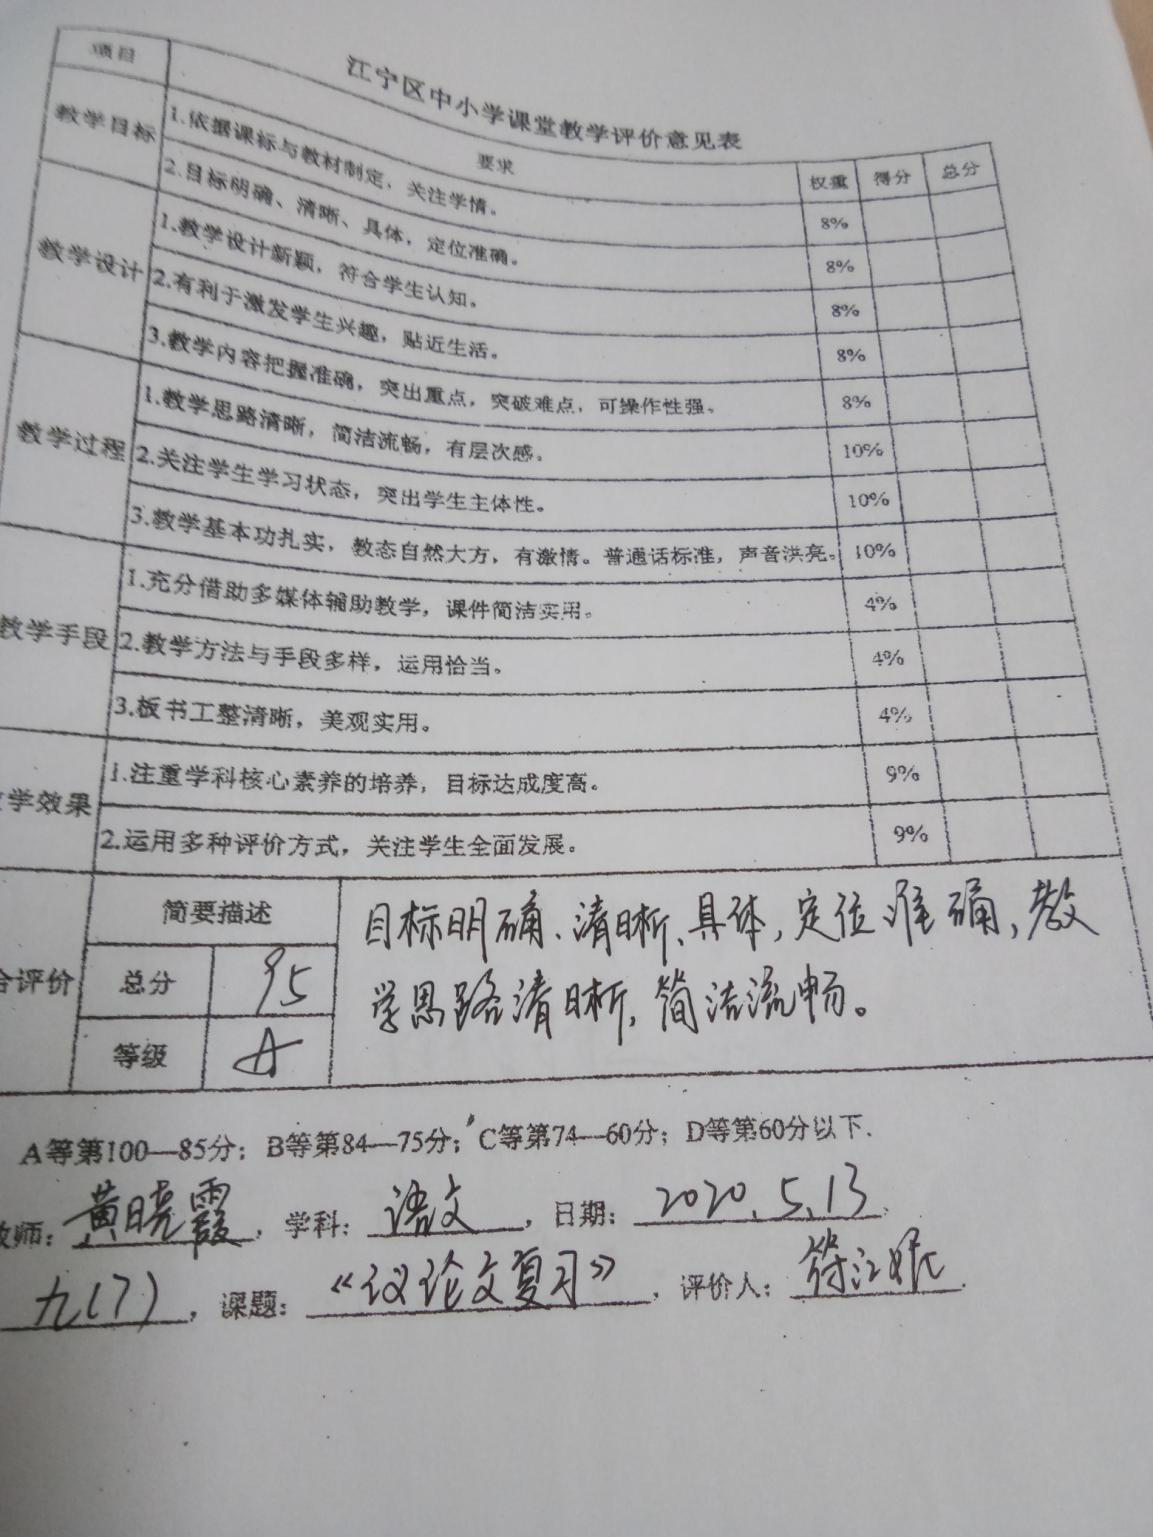 江宁区中小学课堂教学评价意见表
项目 要求 权重 得分 总分
教学目标 1.依据课标与教材制定，关注学情。 8%
2.目标明确、清晰、具体，定位准确。 8%
教学设计 1.教学设计新颖，符合学生认知。 8%
2.有利于激发学生兴趣，贴近生活。 8%
3.教学内容把握准确，突出重点，突破难点，可操作性强。 8%
教学过程 1.教学思路清晰，简洁流畅，有层次感。 10%
2.关注学生学习状态，突出学生主体性。 10%
3.教学基本功扎实，教态自然大方，有激情。普通话标准，声音洪亮。 10%
教学手段 1.充分借助多媒体辅助教学，课件简洁实用。 4%
2.教学方法与手段多样，运用恰当。 4%
3.板书工整清晰，美观实用。 4%
学效果 1.注重学科核心素养的培养，目标达成度高。 9%
2.运用多种评价方式，关注学生全面发展。 9%
合评价 简要描述 目标明确、清晰、具体，定位准确，教
学思路清晰，简洁流畅。
总分 95
等级 A
A等第100—85分；B等第84—75分；C等第74—60分；D等第60分以下.
教师：黄晓霞，学科：语文，日期：2020.5.13
九(7)，课题：《议论文复习》，评价人：